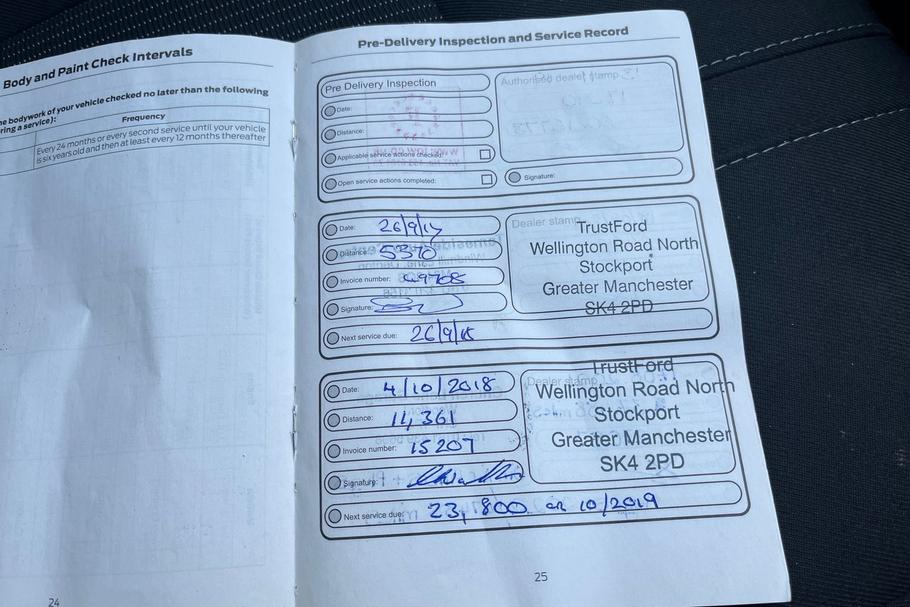 Body and Paint Check Intervals
he bodywork of your vehicle checked no later than the following
ring a service):
Frequency
Every 24 months or every second service until your vehicle
is six years old and then at least every 12 months thereafter
24
Pre-Delivery Inspection and Service Record
Pre Delivery Inspection
Date:
Distance:
Applicable service actions checked:
Open service actions completed:
Authorised dealer stamp
Signature:
Date: 26/9/17
Distance: 5370
Invoice number:
Signature:
Next service due: 26/9/18
Dealer stamp
TrustFord
Wellington Road North
Stockport
Greater Manchester
SK4 2PD
Date: 4/10/2018
Distance: 14,361
Invoice number: 15207
Signature:
Next service due: 23,800 or 10/2019
Dealer stamp
TrustFord
Wellington Road North
Stockport
Greater Manchester
SK4 2PD
25